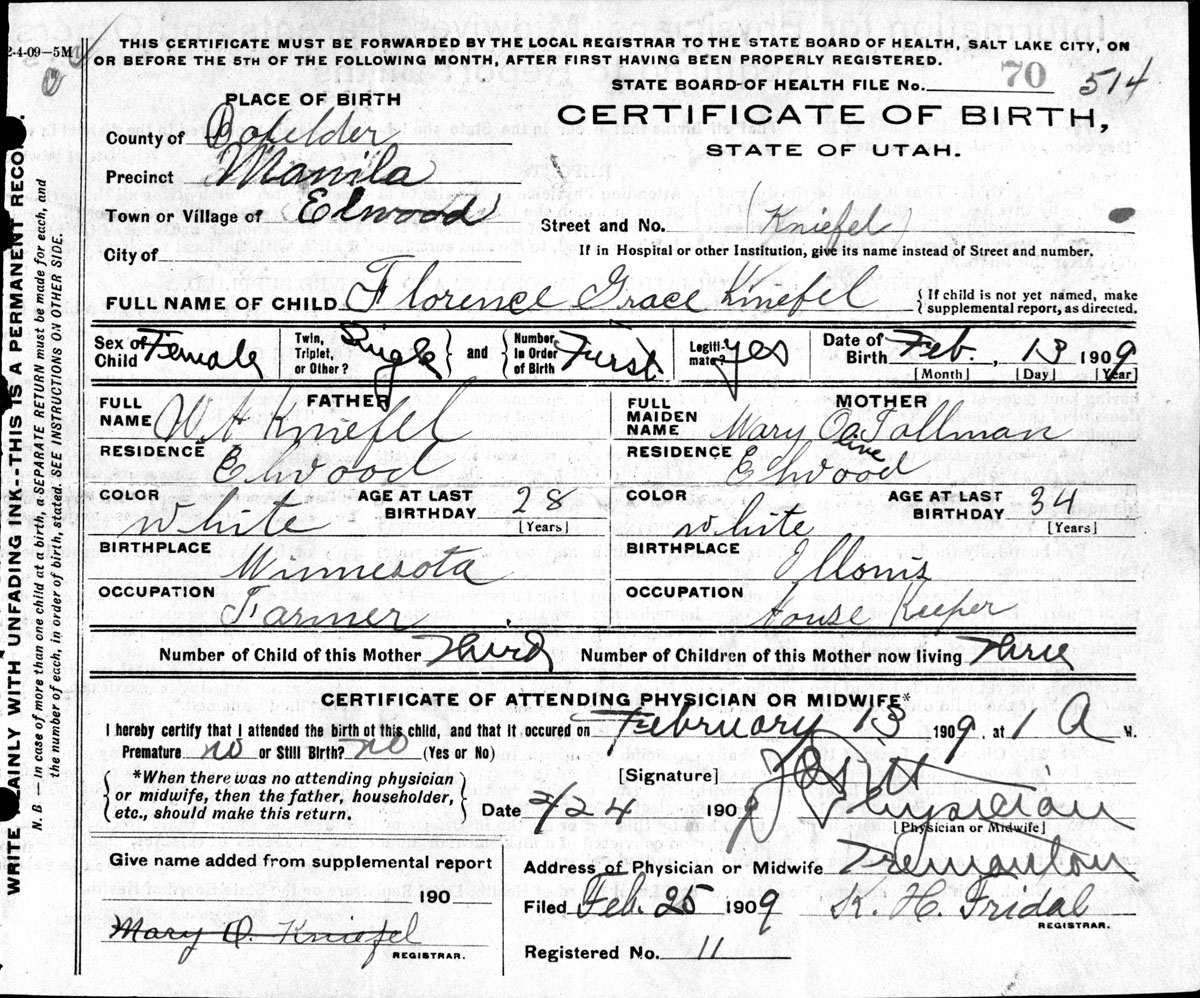 2-4-09—5M
THIS CERTIFICATE MUST BE FORWARDED BY THE LOCAL REGISTRAR TO THE STATE BOARD OF HEALTH, SALT LAKE CITY, ON
OR BEFORE THE 5TH OF THE FOLLOWING MONTH, AFTER FIRST HAVING BEEN PROPERLY REGISTERED.
STATE BOARD OF HEALTH FILE No. 70 514
PLACE OF BIRTH
CERTIFICATE OF BIRTH,
STATE OF UTAH.
County of Boxelder
Precinct Manila
Town or Village of Elwood
Street and No. (Kniefel)
If in Hospital or other Institution, give its name instead of Street and number.
City of
FULL NAME OF CHILD Florence Grace Kniefel
{If child is not yet named, make supplemental report, as directed.
Sex of Child Female Twin, Triplet, or Other? Single } and { Number in Order of Birth First Legitimate? yes Date of Birth Feb. 13 1909
[Month] [Day] [Year]
FATHER
FULL NAME W A Kniefel
RESIDENCE Elwood
COLOR white AGE AT LAST BIRTHDAY 28 [Years]
BIRTHPLACE Minnesota
OCCUPATION Farmer
MOTHER
FULL MAIDEN NAME Mary Olive Tallman
RESIDENCE Elwood
COLOR white AGE AT LAST BIRTHDAY 34 [Years]
BIRTHPLACE Illonis
OCCUPATION House Keeper
Number of Child of this Mother Third Number of Children of this Mother now living Three
CERTIFICATE OF ATTENDING PHYSICIAN OR MIDWIFE*
I hereby certify that I attended the birth of this child, and that it occured on February 13 1909, at 1 A M.
Premature no or Still Birth? no (Yes or No)
{*When there was no attending physician
or midwife, then the father, householder,
etc., should make this return.}
[Signature]
Date 2/24 1909 Physician
[Physician or Midwife]
Give name added from supplemental report
190
Mary O. Kniefel
REGISTRAR.
Address of Physician or Midwife Tremonton
Filed Feb. 25 1909 K. H. Fridal
REGISTRAR.
Registered No. 11
WRITE PLAINLY WITH UNFADING INK--THIS IS A PERMANENT RECORD.
N. B.—In case of more than one child at a birth, a SEPARATE RETURN must be made for each, and
the number of each, in order of birth, stated. SEE INSTRUCTIONS ON OTHER SIDE.